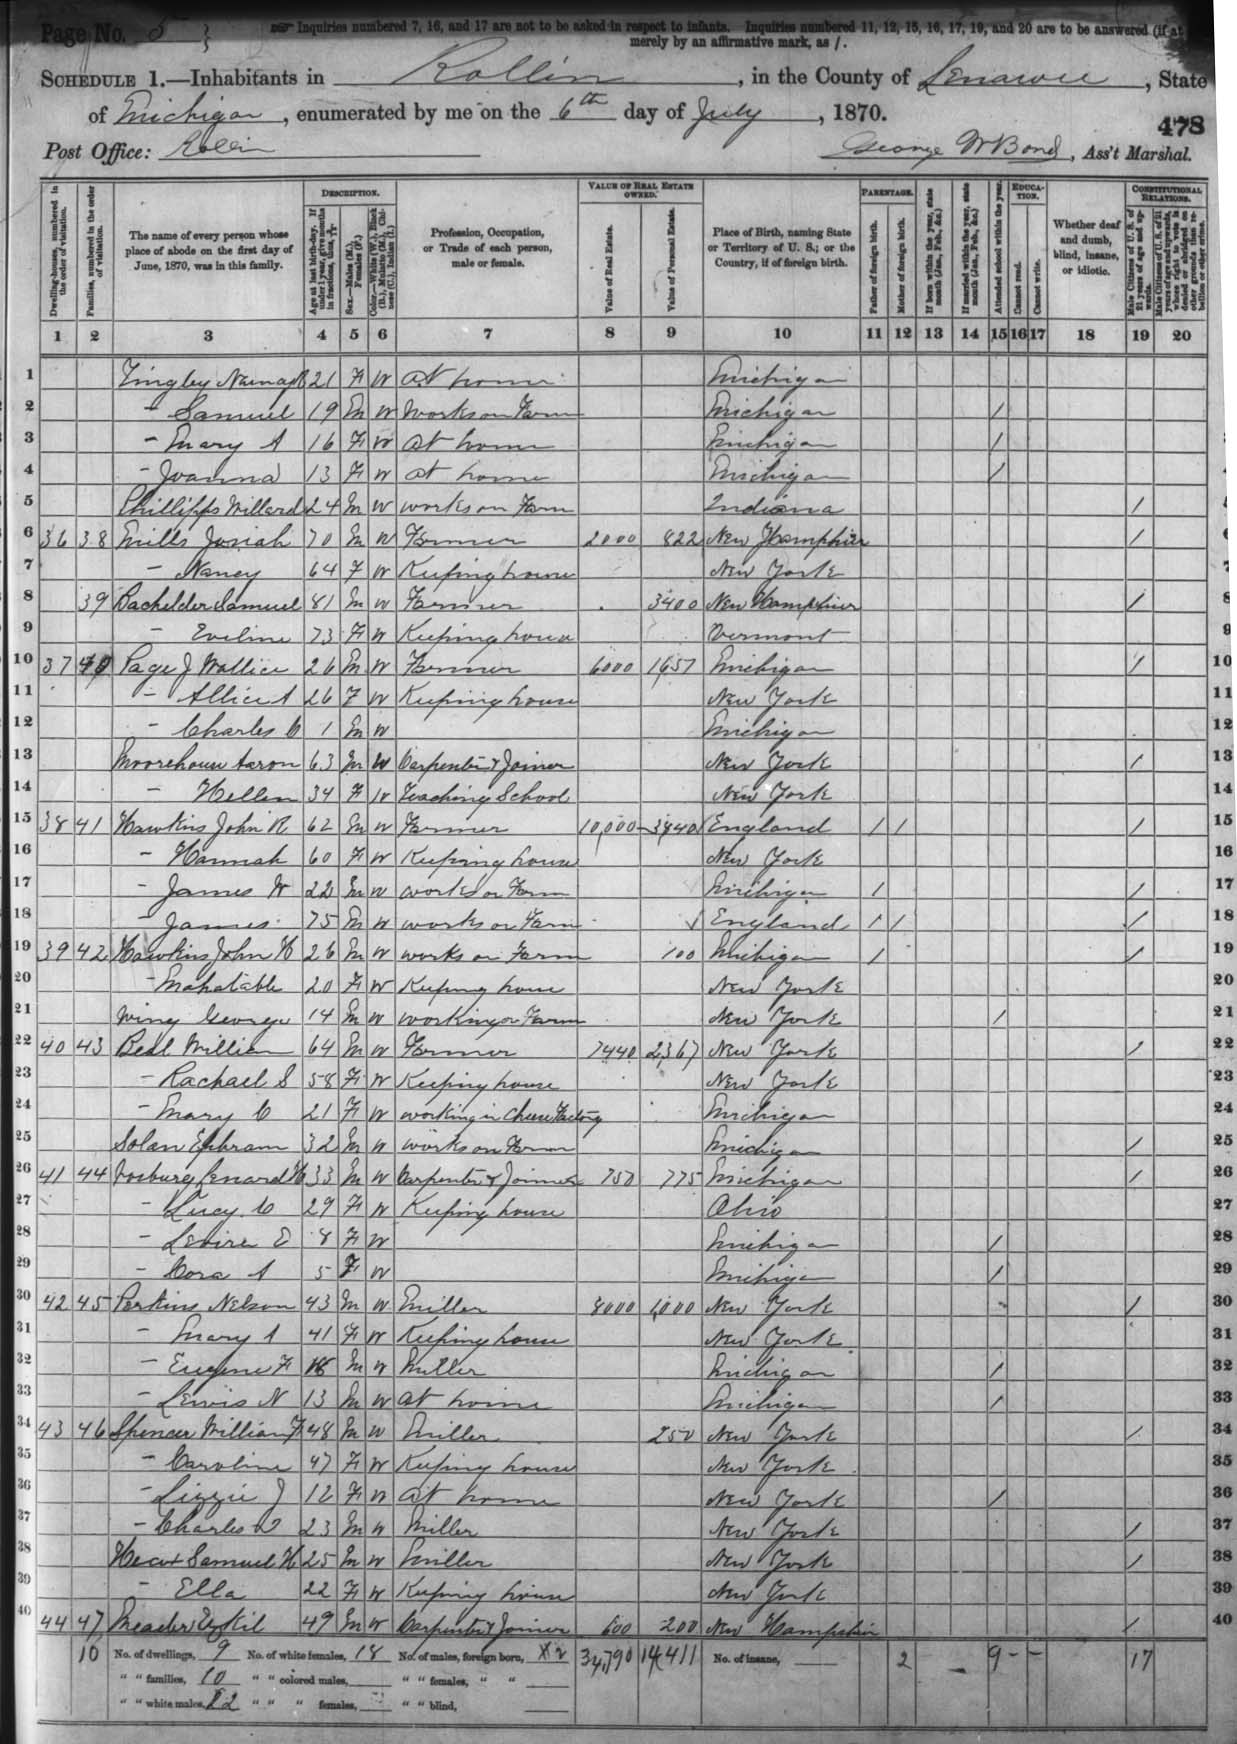 Page No. 5
☞ Inquiries numbered 7, 16, and 17 are not to be asked in respect to infants. Inquiries numbered 11, 12, 15, 16, 17, 19, and 20 are to be answered (if at
merely by an affirmative mark, as /.
SCHEDULE 1.—Inhabitants in Rollin, in the County of Lenawee, State
of Michigan, enumerated by me on the 6th day of July, 1870.
478
Post Office: Rollin George W Bond, Ass't Marshal.
Dwelling-houses, numbered in the order of visitation.
Families, numbered in the order of visitation.
The name of every person whose place of abode on the first day of June, 1870, was in this family.
DESCRIPTION.
Age at last birth-day. If under 1 year, give months in fractions, thus, 3/12
Sex.—Males (M.), Females (F.)
Color.—White (W.), Black (B.), Mulatto (M.), Chinese (C.), Indian (I.)
Profession, Occupation, or Trade of each person, male or female.
VALUE OF REAL ESTATE OWNED.
Value of Real Estate.
Value of Personal Estate.
Place of Birth, naming State or Territory of U. S.; or the Country, if of foreign birth.
PARENTAGE.
Father of foreign birth.
Mother of foreign birth.
If born within the year, state month (Jan., Feb., &c.)
If married within the year, state month (Jan., Feb., &c.)
Attended school within the year.
EDUCATION.
Cannot read.
Cannot write.
Whether deaf and dumb, blind, insane, or idiotic.
CONSTITUTIONAL RELATIONS.
Male Citizens of U. S. of 21 years of age and upwards.
Male Citizens of U. S. of 21 years of age and upwards, whose right to vote is denied or abridged on other grounds than rebellion or other crime.
1 2 3 4 5 6 7 8 9 10 11 12 13 14 15 16 17 18 19 20
1 Tingley 21 F W At home Michigan
2 - Samuel 19 M W Works on Farm Michigan / 2
3 - Mary A 16 F W At home Michigan / 3
4 - Joanna 13 F W At home Michigan / 4
5 Phillipps Willard 24 M W works on Farm Indiana / 5
6 36 38 Mills Josiah 70 M W Farmer 2000 822 New Hampshier / 6
7 - Nancy 64 F W Keeping house New York 7
8 39 Bachelder Samuel 81 M W Farmer 3400 New Hampshier / 8
9 - Eveline 73 F W Keeping house Vermont 9
10 37 40 Page J Wallice 26 M W Farmer 6000 1657 Michigan / 10
11 - Allice A 26 F W Keeping house New York 11
12 - Charles C 1 M W Michigan 12
13 Moorehouse Aaron 63 M W Carpenter & Joiner New York / 13
14 - Hellen 34 F W Teaching School New York 14
15 38 41 Hawkins John R 62 M W Farmer 10,000 3840 England / / / 15
16 - Hannah 60 F W Keeping house New York 16
17 - James W 22 M W works on Farm Michigan / / 17
18 - James 75 M W works on Farm England / / / 18
19 39 42 Hawkins John H 26 M W works on Farm 100 Michigan / / 19
20 - Mahatable 20 F W Keeping house New York 20
21 Wing George 14 M W working on Farm New York / 21
22 40 43 Beal William 64 M W Farmer 7440 2367 New York / 22
23 - Rachael S 58 F W Keeping house New York 23
24 - Mary C 21 F W working in Cheese Factory Michigan 24
25 Solan Ephram 32 M W works on Farm Michigan / 25
26 41 44 Vosburg Lenard H 33 M W Carpenter & Joiner 750 775 Michigan / 26
27 - Lucy C 29 F W Keeping house Ohio 27
28 - E 8 F W Michigan / 28
29 - Cora A 5 F W Michigan / 29
30 42 45 Perkins Nelson 43 M W Miller 8000 1,000 New York / 30
31 - Mary A 41 F W Keeping house New York 31
32 - Eugene F M W Miller Michigan / 32
33 - Lewis N 13 M W At home Michigan / 33
34 43 46 Spencer William F 48 M W Miller 250 New York / 34
35 - Caroline 47 F W Keeping house New York 35
36 - Lizzie J 12 F W At home New York / 36
37 - Charles W 23 M W Miller New York / 37
38 Samuel H 25 M W Miller New York / 38
39 - Ella 22 F W Keeping house New York 39
40 44 47 Meader 49 M W Carpenter & Joiner 600 200 New Hampshier / 40
10 No. of dwellings, 9 No. of white females, 18 No. of males, foreign born, 2 34,790 14,411 No. of insane, 2 – 9 - - 17
" " families, 10 " " colored males, " " females, " "
" " white males, 22 " " " females, " " blind,